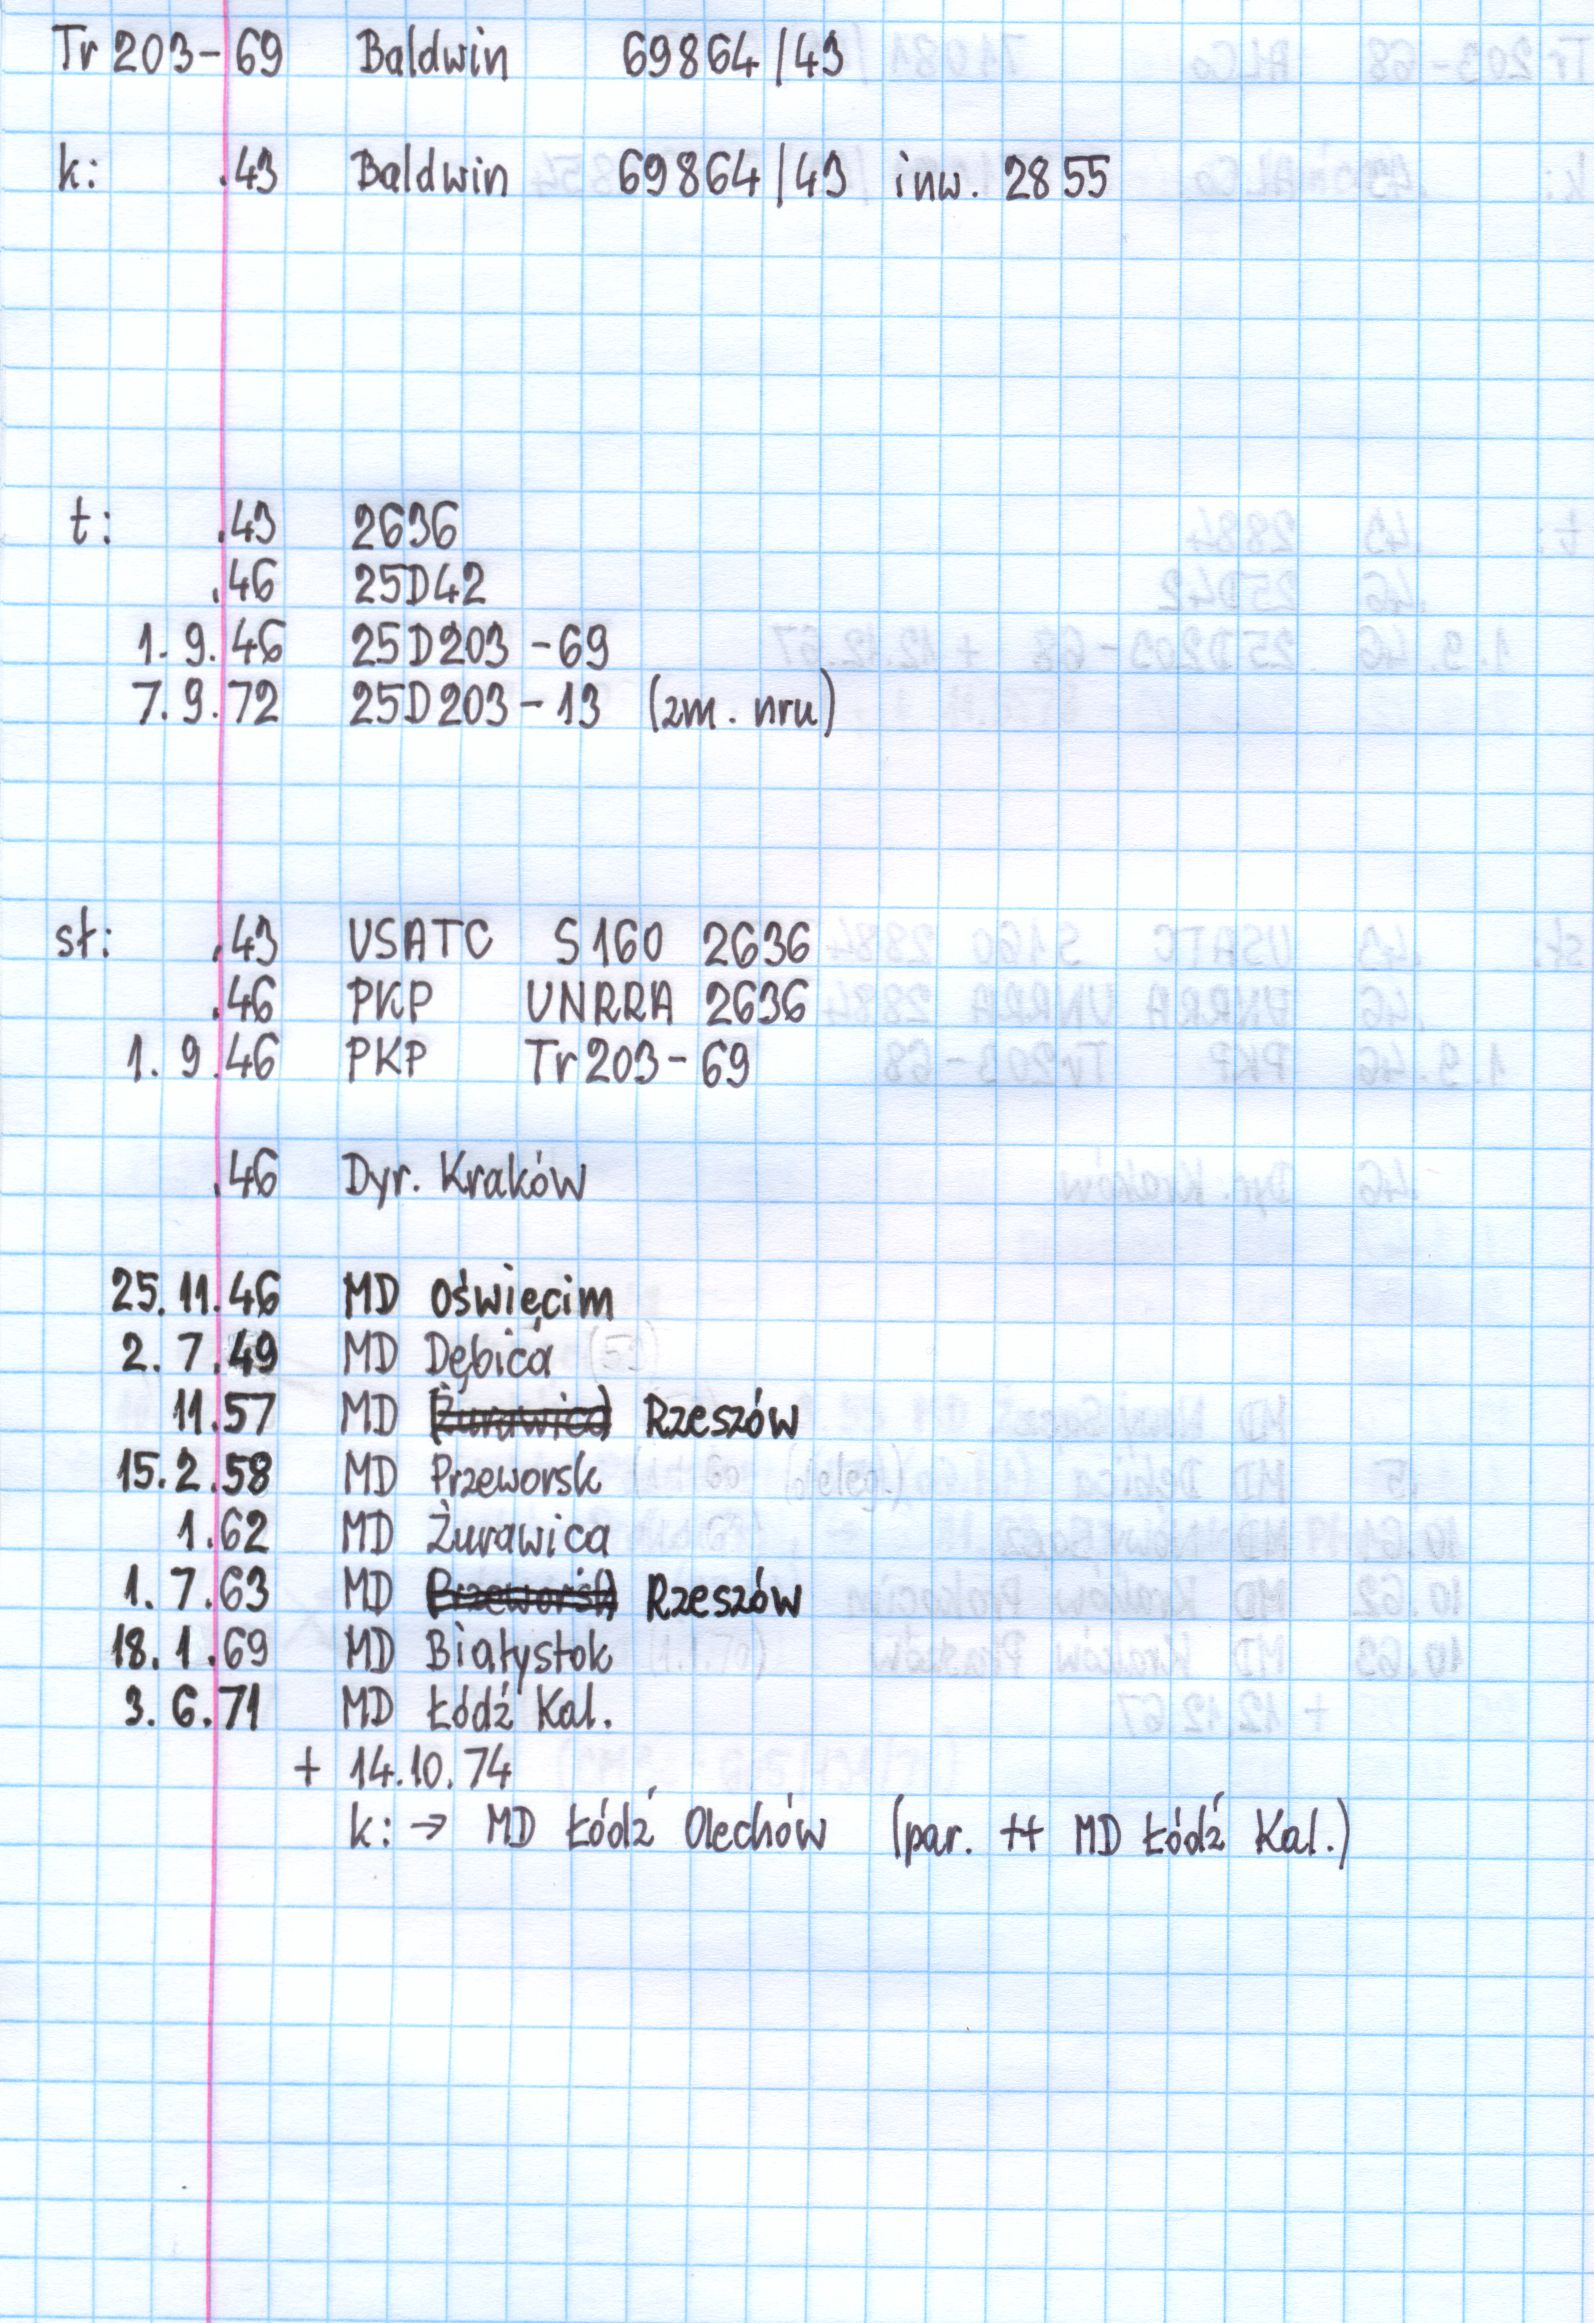 Tr 203-69 Baldwin 69864/43
k: .43 Baldwin 69864/43 inw. 2855
t: .43 2636
.46 25D42
1.9.46 25D203-69
7.9.72 25D203-13 (zm. nru)
sł: .43 USATC S160 2636
.46 PKP UNRRA 2636
1.9.46 PKP Tr203-69
.46 Dyr. Kraków
25.11.46 MD Oświęcim
2.7.49 MD Dębica
11.57 MD (Żurawica) Rzeszów
15.2.58 MD Przeworsk
1.62 MD Żurawica
1.7.63 MD (Przeworsk) Rzeszów
18.1.69 MD Białystok
3.6.71 MD Łódź Kal.
+ 14.10.74
k: → MD Łódź Olechów (par. ++ MD Łódź Kal.)